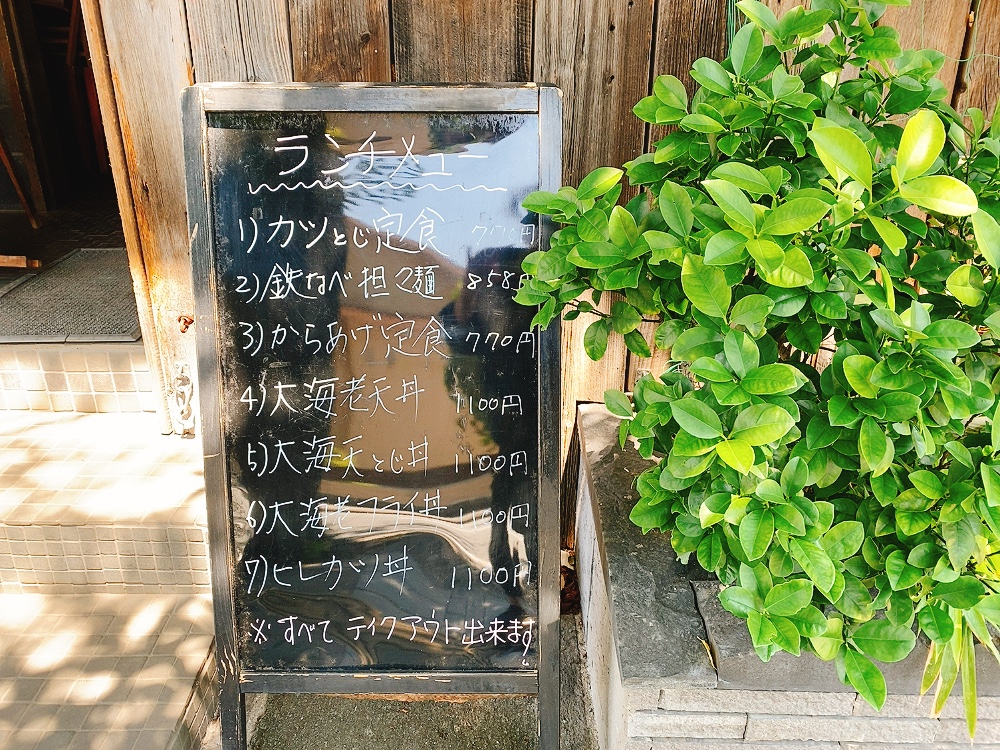 ランチメニュー
1)カツとじ定食 770円
2)鉄なべ担々麺 858円
3)からあげ定食 770円
4)大海老天丼 1100円
5)大海天とじ丼 1100円
6)大海老フライ丼 1100円
7)ヒレカツ丼 1100円
※すべてテイクアウト出来ます。